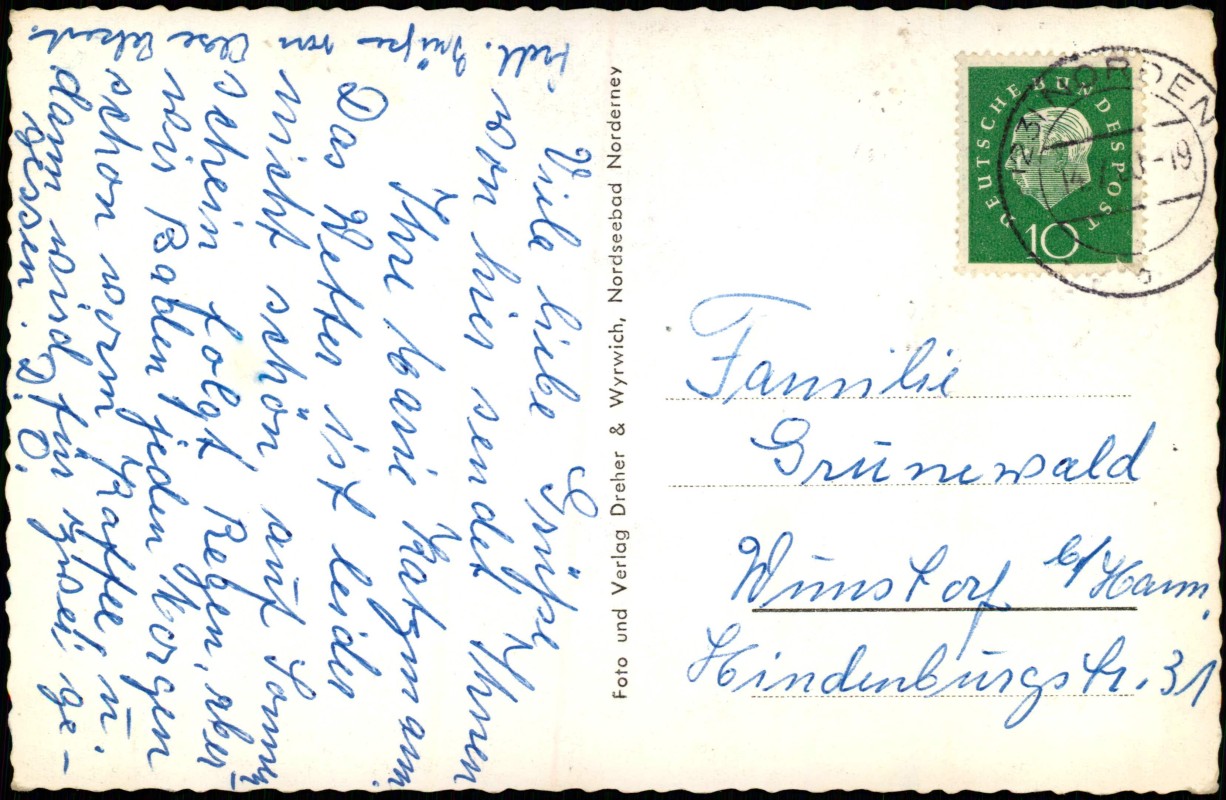 Viele liebe Grüße
von hier sendet Ihnen
Ihre Marie Katzmann.
Das Wetter ist leider
nicht schön auf Sonnen-
schein folgt Regen, aber
wir Baden jeden Morgen
schon vorm Kaffee u.
dann wird für zwei ge-
gessen. D. O.
herzl. Grüße von
Foto und Verlag Dreher & Wyrwich, Nordseebad Norderney
DEUTSCHE BUNDESPOST
10
NORDEN
-19
b
Familie
Grünewald
Wunstorf b/Hann.
Hindenburgstr. 31